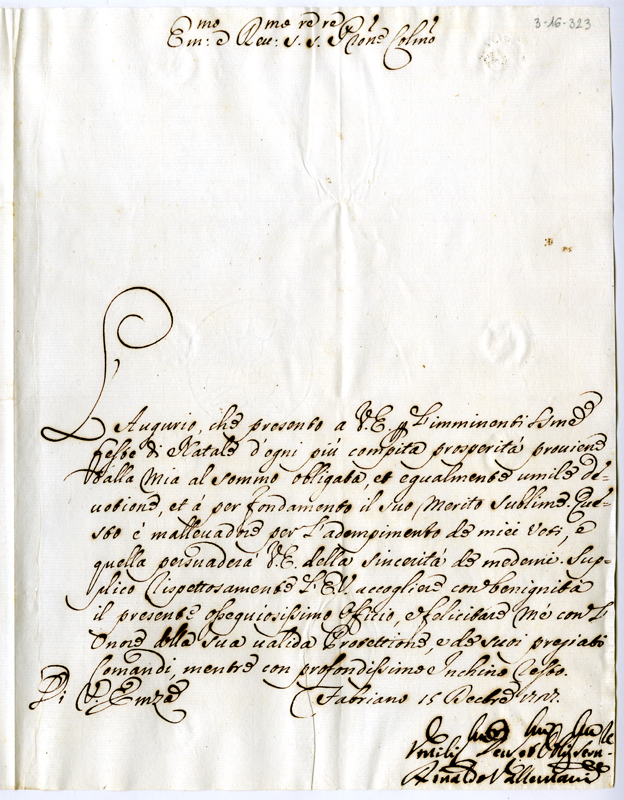 3-16-323
Em:mo e Reu:me s.re s.re Pron̄e Colmo
L'Augurio, che presento a V.E. p L'imminenti SSme
feste di Natale d'ogni più compita prosperità proviene
dalla Mia al sommo obligata et equalmente umile de=
uotione, et á per fondamento il suo Merito sublime. Que=
sto é malleuadore per L'adempimento de miei Voti, e
quella persuaderà V.E. della sincerità de medemi. Sup=
plico rispettosamente L'E.V. accogliere con benignità
il presente ossequiosissimo Officio, e felicitare Mé con L'
Onore della sua ualida Protettione, e de suoi pregiati
Comandi, mentre con profondissimo Inchino resto.
Di V. Emza
Fabriano 15 Decbre 1727.
Rinaldo Vallemani